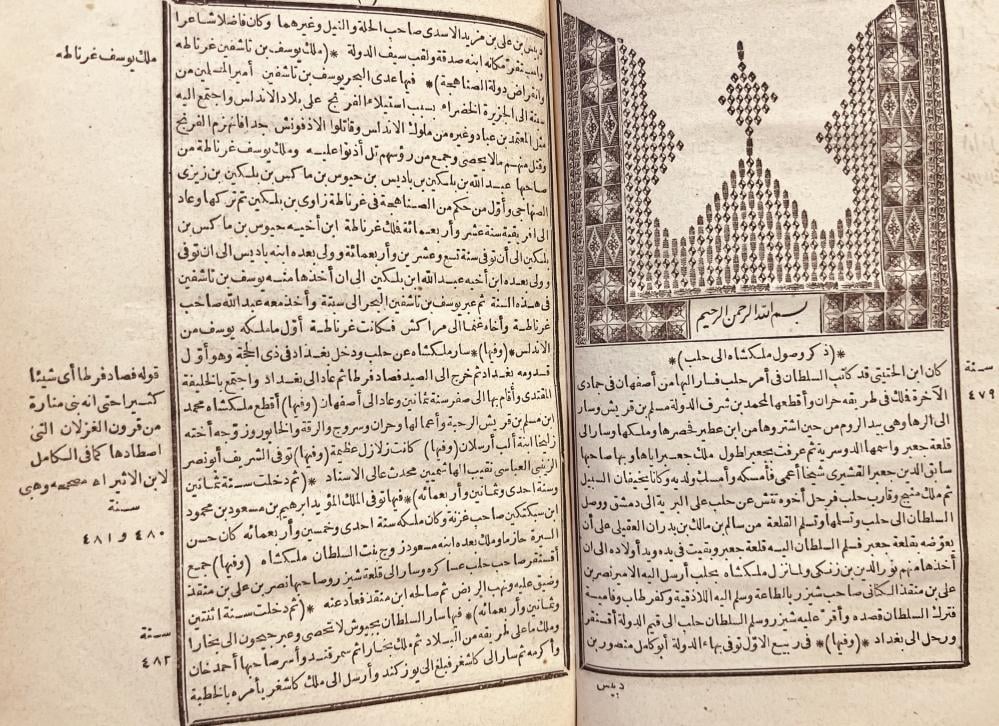 بسم الله الرحمن الرحيم
*(ذكر وصول ملكشاه الى حلب)*
كان ابن الحتيتى قد كاتب السلطان فى أمر حلب فسار اليها من أصفهان فى جمادى
الآخرة فملك فى طريقه حران وأقطعها لمحمد بن شرف الدولة مسلم بن قريش وسار
الى الرها وهى بيد الروم من حين اشتروها من ابن عطير فحصرها وملكها وسار الى
قلعة جعبر واسمها الدوسرية ثم عرفت بجعبر لطول ملك جعبر اياها وبها صاحبها
سابق الدين جعبر القشيرى شيخا أعمى فأمسكه وأمسك ولديه وكانا يخيفان السبيل
ثم ملك منبج وقارب حلب فرحل أخوه تتش عن حلب على البرية الى دمشق ووصل
السلطان الى حلب وتسلمها وتسلم القلعة من سالم بن مالك بن بدران العقيلى على أن
يعوّضه بقلعة جعبر فسلم السلطان اليه قلعة جعبر وبقيت فى يده ويد أولاده الى ان
أخذها منهم نور الدين بن زنكى ولما نزل ملكشاه بحلب أرسل اليه الامير نصر بن
على بن منقذ الكنانى صاحب شيزر بالطاعة وسلم اليه اللاذقية وكفرطاب وفامية
فترك السلطان قصده وأقر عليه شيزر وسلم السلطان حلب الى قسيم الدولة آقسنقر
ورحل الى بغداد *(وفيها)* فى ربيع الاوّل توفى بهاء الدولة أبو كامل منصور بن
دبيس
سنة
٤٧٩
دبيس بن على بن مزيد الاسدى صاحب الحلة والنيل وغيرهما وكان فاضلا شاعرا
واستقر مكانه ابنه صدقة ولقب سيف الدولة *(ملك يوسف بن تاشفين غرناطه
وانقراض دولة الصناهجة)* فيها عدى البحر يوسف بن تاشفين أمير المسلمين من
سبتة الى الجزيرة الخضراء بسبب استيلاء الفرنج على بلاد الاندلس واجتمع اليه
مثل المعتمد بن عباد وغيره من ملوك الاندلس وقاتلوا الاذفونش حدافانهزم الفرنج
وقتل منهم ما لا يحصى وجمع من رؤسهم تل أذنوا عليه وملك يوسف غرناطة من
صاحبها عبد الله بن بلكين بن باديس بن حيوس بن ماكس بن بلكين بن زيرى
الصنهاجى وأوّل من حكم من الصناهجة فى غرناطة زاوى بن بلكين ثم تركها وعاد
الى افريقية سنة عشر وأربعمائة فملك غرناطة ابن أخيه حيوس بن ماكس بن
بلكين الى أن توفى سنة تسع وعشرين وأربعمائة وولى بعده ابنه باديس الى ان توفى
وولى بعده ابن أخيه عبد الله ابن بلكين الى ان أخذها منه يوسف بن تاشفين
فى هذه السنة ثم عبر يوسف بن تاشفين البحر الى سبتة وأخذ معه عبد الله صاحب
غرناطة وأخاه تميما الى مراكش فكانت غرناطة أوّل ما ملكه يوسف من
الاندلس *(وفيها)* سار ملكشاه عن حلب ودخل بغداد فى ذى الحجة وهو أوّل
قدومه بغداد ثم خرج الى الصيد فصاد فرطا ثم عاد الى بغداد واجتمع بالخليفة
المقتدى وأقام بها الى صفر سنة ثمانين وعاد الى أصفهان (وفيها) أقطع ملكشاه محمد
ابن مسلم بن قريش الرحبة وأعمالها وحران وسروج والرقة والخابور وزوّجه أخته
زليخا ابنة ألب أرسلان (وفيها) كانت زلازل عظيمة (وفيها) توفى الشريف أبو نصر
الزينبى العباسى نقيب الهاشميين محدث عالى الاسناد *(ثم دخلت سنة ثمانين
وسنة احدى وثمانين وأربعمائة)* فيها توفى الملك المؤيد ابرهيم بن مسعود بن محمود
ابن سبكتكين صاحب غزنة وكان ملكه سنة احدى وخمسين وأربعمائة كان حسن
السيرة حازما وملك بعده ابنه مسعود زوج بنت السلطان ملكشاه (وفيها) جمع
آقسنقر صاحب حلب عساكره وسار الى قلعة شيزر وصاحبها نصر بن على بن منقذ
وضيق عليه ونهب الربض ثم صالحه ابن منقذ فعاد عنه *(ثم دخلت سنة اثنتين
وثمانين وأربعمائة)* فيها سار السلطان بجيوش لا تحصى وعبر جيحون الى بخارا
وملك ما على طريقه من البلاد ثم ملك بخارا ثم سمرقند وأسر صاحبها أحمد خان
وأكرمه ثم سار الى كاشغر فبلغ الى يوزكند وأرسل الى ملك كاشغر يأمره بالخطبة
ملك يوسف غرناطه
قوله فصاد فرطا أى شيئا
كثيرا حتى انه بنى منارة
من قرون الغزلان التى
اصطادها كما فى الكامل
لابن الاثير اه مصححه وهبى
سنة
٤٨٠ و ٤٨١
سنة
٤٨٢